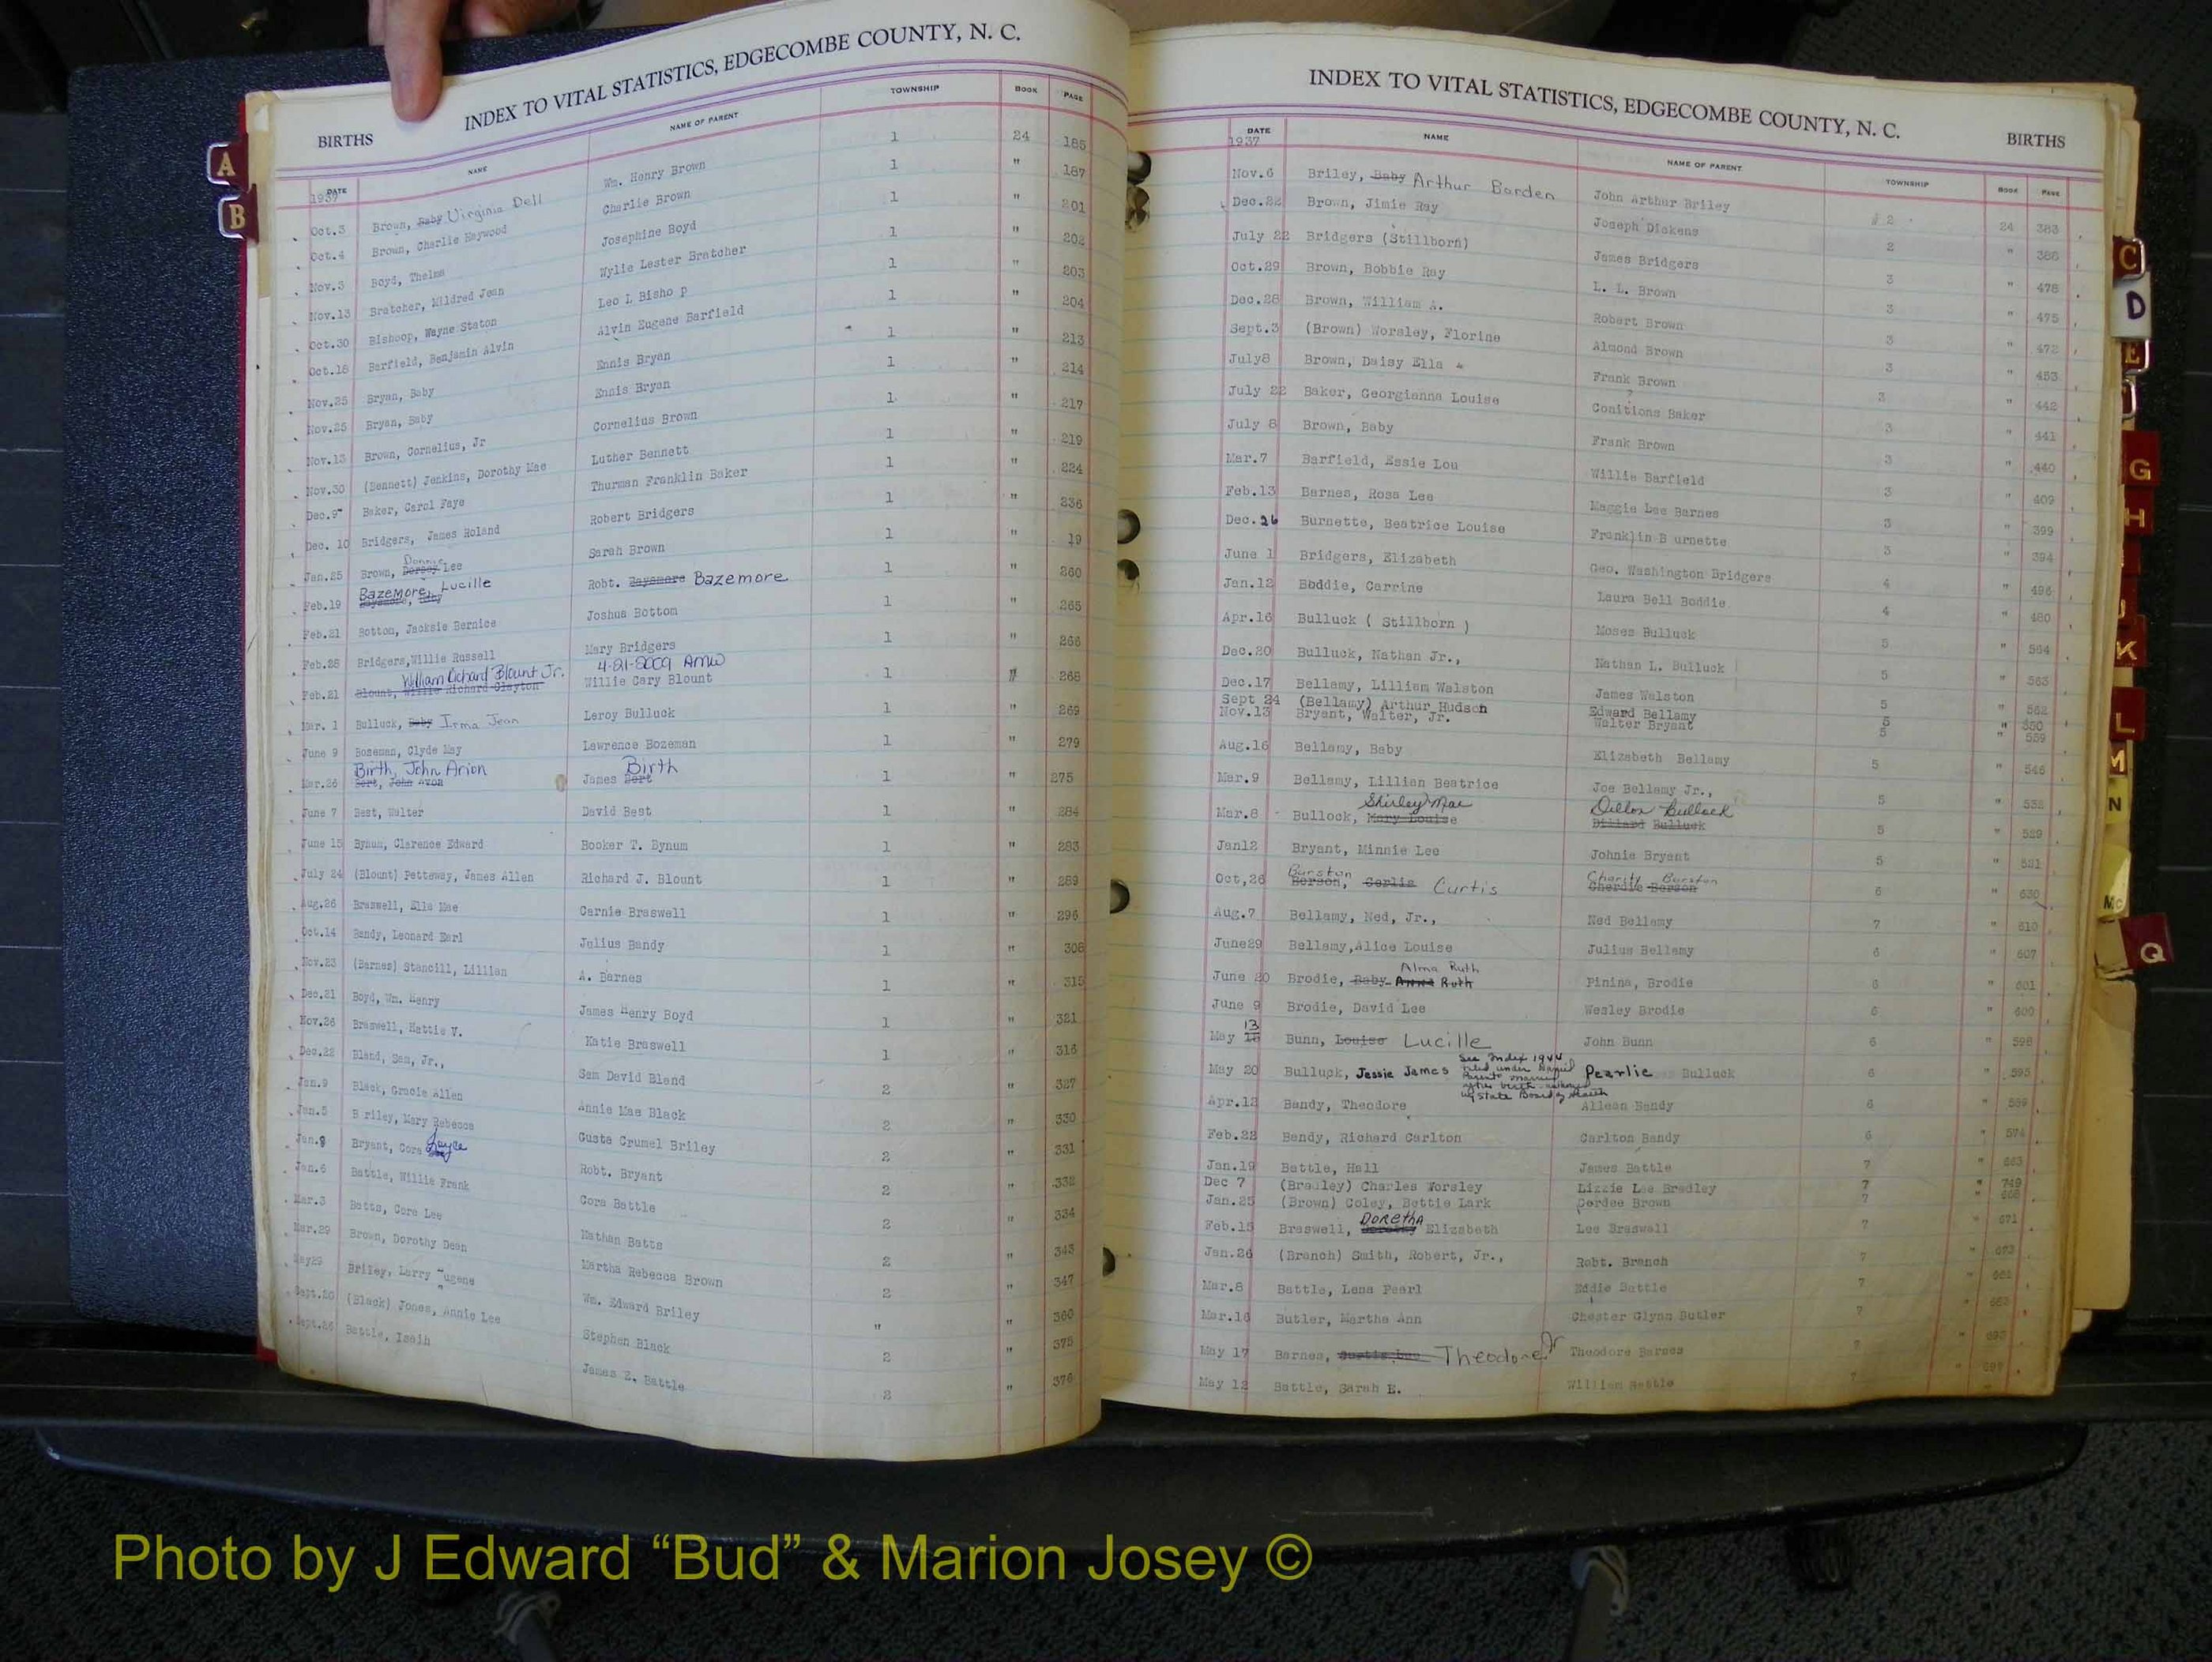 INDEX TO VITAL STATISTICS, EDGECOMBE COUNTY, N. C.
BIRTHS
DATE NAME NAME OF PARENT TOWNSHIP BOOK PAGE
1937
Oct.3 Brown, Baby Virginia Dell Wm. Henry Brown 1 24 185
Oct.4 Brown, Charlie Haywood Charlie Brown 1 " 187
Nov.3 Boyd, Thelma Josephine Boyd 1 " 201
Nov.13 Bratcher, Mildred Jean Wylie Lester Bratcher 1 " 202
Oct.30 Bishoop, Wayne Staton Leo L Bisho p 1 " 203
Oct.18 Barfield, Benjamin Alvin Alvin Eugene Barfield 1 " 204
Nov.25 Bryan, Baby Ennis Bryan 1 " 213
Nov.25 Bryan, Baby Ennis Bryan 1 " 214
Nov.13 Brown, Cornelius, Jr Cornelius Brown 1 " 217
Nov.30 (Bennett) Jenkins, Dorothy Mae Luther Bennett 1 " 219
Dec.9 Baker, Carol Faye Thurman Franklin Baker 1 " 224
Dec. 10 Bridgers, James Roland Robert Bridgers 1 " 236
Jan.25 Brown, Lee Sarah Brown 1 " 19
Feb.19 Bazemore, Lucille Robt. Baysmore Bazemore 1 " 260
Feb.21 Bottom, Jacksie Bernice Joshua Bottom 1 " 265
Feb.28 Bridgers, Willie Russell Mary Bridgers 1 " 266
William Richard Blount Jr. 4-21-2009 AMW
Feb.21 Blount, Willie Richard Clayton Willie Cary Blount 1 " 268
Mar. 1 Bulluck, Baby Irma Jean Leroy Bulluck 1 " 269
June 9 Boseman, Clyde May Lawrence Bozeman 1 " 279
Birth, John Arion Birth
Mar.26 Bert, John Avon James Bert 1 " 275
June 7 Best, Walter David Best 1 " 284
June 15 Bynum, Clarence Edward Booker T. Bynum 1 " 283
July 24 (Blount) Petteway, James Allen Richard J. Blount 1 " 289
Aug.26 Braswell, Ella Mae Carnie Braswell 1 " 296
Oct.14 Bandy, Leonard Earl Julius Bandy 1 " 308
Nov.23 (Barnes) Stancill, Lillian A. Barnes 1 " 315
Dec.21 Boyd, Wm. Henry James Henry Boyd 1 " 321
Nov.26 Braswell, Hattie V. Katie Braswell 1 " 316
Dec.22 Bland, Sam, Jr., Sam David Bland 2 " 327
Jan.9 Black, Gracie Allen Annie Mae Black 2 " 330
Jan.5 B riley, Mary Rebecca Gusta Crumel Briley 2 " 331
Jan.9 Bryant, Cora Joyce Robt. Bryant 2 " 332
Jan.6 Battle, Willie Frank Cora Battle 2 " 334
Mar.3 Batts, Cora Lee Nathan Batts 2 " 343
Mar.29 Brown, Dorothy Dean Martha Rebecca Brown 2 " 347
May29 Briley, Larry Eugene Wm. Edward Briley " " 360
Sept.20 (Black) Jones, Annie Lee Stephen Black 2 " 375
Sept.26 Battle, Isaih James E. Battle 2 " 376
INDEX TO VITAL STATISTICS, EDGECOMBE COUNTY, N. C.
BIRTHS
DATE NAME NAME OF PARENT TOWNSHIP BOOK PAGE
1937
Nov.6 Briley, Baby Arthur Barden John Arthur Briley 2 24 383
Dec.22 Brown, Jimie Ray Joseph Dickens 2 " 386
July 22 Bridgers (Stillborn) James Bridgers 3 " 478
Oct.29 Brown, Bobbie Ray L. L. Brown 3 " 475
Dec.28 Brown, William A. Robert Brown 3 " 472
Sept.3 (Brown) Worsley, Florine Almond Brown 3 " 453
July8 Brown, Daisy Ella Frank Brown 3 " 442
July 22 Baker, Georgianna Louise Conitions Baker 3 " 441
July 8 Brown, Baby Frank Brown 3 " 440
Mar.7 Barfield, Essie Lou Willie Barfield 3 " 409
Feb.13 Barnes, Rosa Lee Maggie Lee Barnes 3 " 399
Dec.26 Burnette, Beatrice Louise Franklin B urnette 3 " 394
June 1 Bridgers, Elizabeth Geo. Washington Bridgers 4 " 496
Jan.12 Boddie, Carrine Laura Bell Boddie 4 " 480
Apr.16 Bulluck ( Stillborn ) Moses Bulluck 5 " 564
Dec.20 Bulluck, Nathan Jr., Nathan L. Bulluck 5 " 563
Dec.17 Bellamy, Lilliam Walston James Walston 5 " 562
Sept 24 (Bellamy) Arthur Hudson Edward Bellamy 5 " 550
Nov.13 Bryant, Walter, Jr. Walter Bryant 5 " 559
Aug.16 Bellamy, Baby Elizabeth Bellamy 5 " 546
Mar.9 Bellamy, Lillian Beatrice Joe Bellamy Jr., 5 "
Shirley Mae Dillon Bullock
Mar.8 Bullock, Mary Louise Dillard Bulluck 5 " 529
Jan12 Bryant, Minnie Lee Johnie Bryant 5 " 521
Burston Charity Burston
Oct,26 Berson, Gerlie Curtis Cherdie Berson 6 " 630
Aug.7 Bellamy, Ned, Jr., Ned Bellamy 7 " 610
June29 Bellamy, Alice Louise Julius Bellamy 6 " 607
Alma Ruth
June 20 Brodie, Baby Anna Ruth Pinina, Brodie 6 " 601
June 9 Brodie, David Lee Wesley Brodie 6 " 600
13
May Bunn, Louise Lucille John Bunn 6 " 598
See Index 1944
filed under Daniel
May 20 Bulluck, Jessie James Pearlie Bulluck 6 " 595
by State Board of Health
Apr.12 Bandy, Theodore Allean Bandy 6 " 589
Feb.22 Bandy, Richard Carlton Carlton Bandy 6 " 574
Jan.19 Battle, Hall James Battle 7 " 663
Dec 7 (Bradley) Charles Worsley Lizzie Lee Bradley 7 " 749
Jan.25 (Brown) Coley, Bettie Lark Gordee Brown 7 " 668
Doretha
Feb.15 Braswell, Dorothy Elizabeth Lee Braswell 7 " 671
Jan.26 (Branch) Smith, Robert, Jr., Robt. Branch 7 " 673
Mar.8 Battle, Lena Pearl Eddie Battle 7 "
Mar.16 Butler, Martha Ann Chester Glynn Butler 7 "
May 17 Barnes, Curtis Lee Theodore Jr Theodore Barnes 7 " 693
May 12 Battle, Sarah E. William Battle 7 "
A
B
C
D
E
G
H
J
K
L
M
N
Mc
Q
Photo by J Edward “Bud” & Marion Josey ©